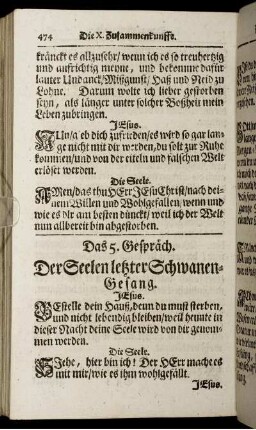 474 Die X. Zusammenkunfft.
kränckt es allzusehr/ wenn ich es so treuhertzig
und auffrichtig meyne, und bekomme dafür
lauter Undanck/ Mißgunst/ Haß und Neid zu
Lohne. Darum wolte ich lieber gestorben
seyn, als länger unter solcher Boßheit mein
Leben zubringen.
JEsus.
NUn/ geb dich zufrieden/ es wird so gar lan-
ge nicht mit dir werden/ du solt zur Ruhe
kommen/ und von der eiteln und falschen Welt
erlöset werden.
Die Seele.
AMen/ das thu HErr JEsu Christ/ nach dei-
nem Willen und Wohlgefallen, wenn und
wie es dir am besten dünckt/ weil ich der Welt
nun allbereit bin abgestorben.
Das 5. Gespräch.
Der Seelen letzter Schwanen-
Gesang.
JEsus.
BEstelle dein Hauß, denn du must sterben,
und nicht lebendig bleiben/ weil heunte in
dieser Nacht deine Seele wird von dir genom-
men werden.
Die Seele.
SIehe, hier bin ich! Der HErr mache es
mit mir/ wie es ihm wohlgefällt.
JEsus.